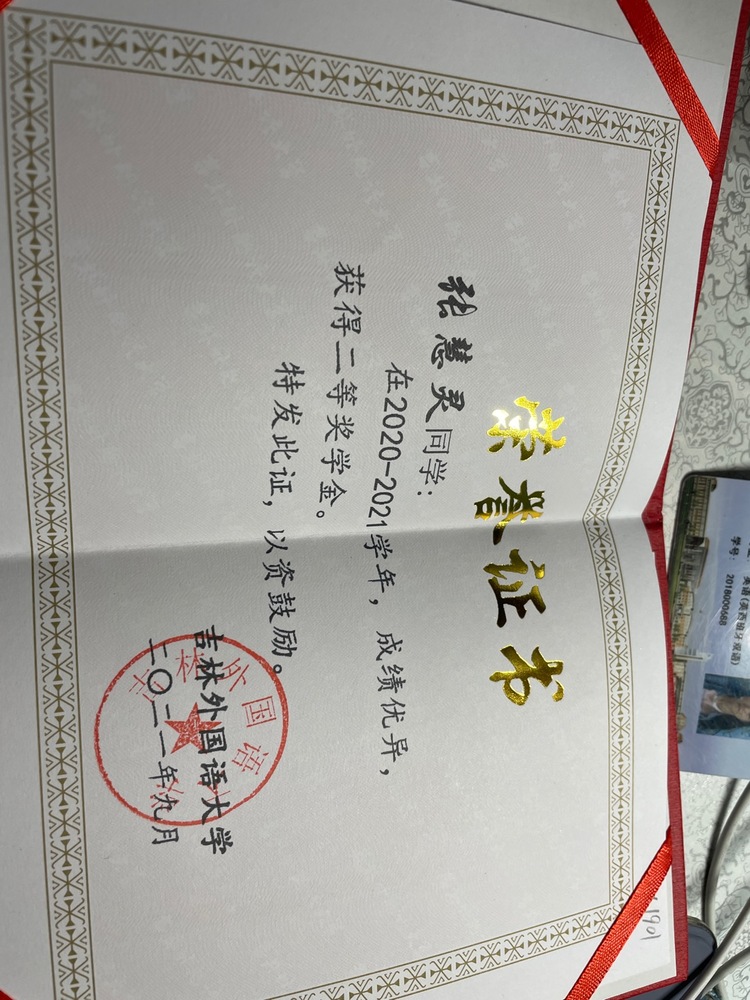 荣誉证书
张慧灵同学：
在2020-2021学年，成绩优异，
获得二等奖学金。
特发此证，以资鼓励。
吉林外国语大学
二〇二一年九月
英语(英西班牙双语)
学号：
1901